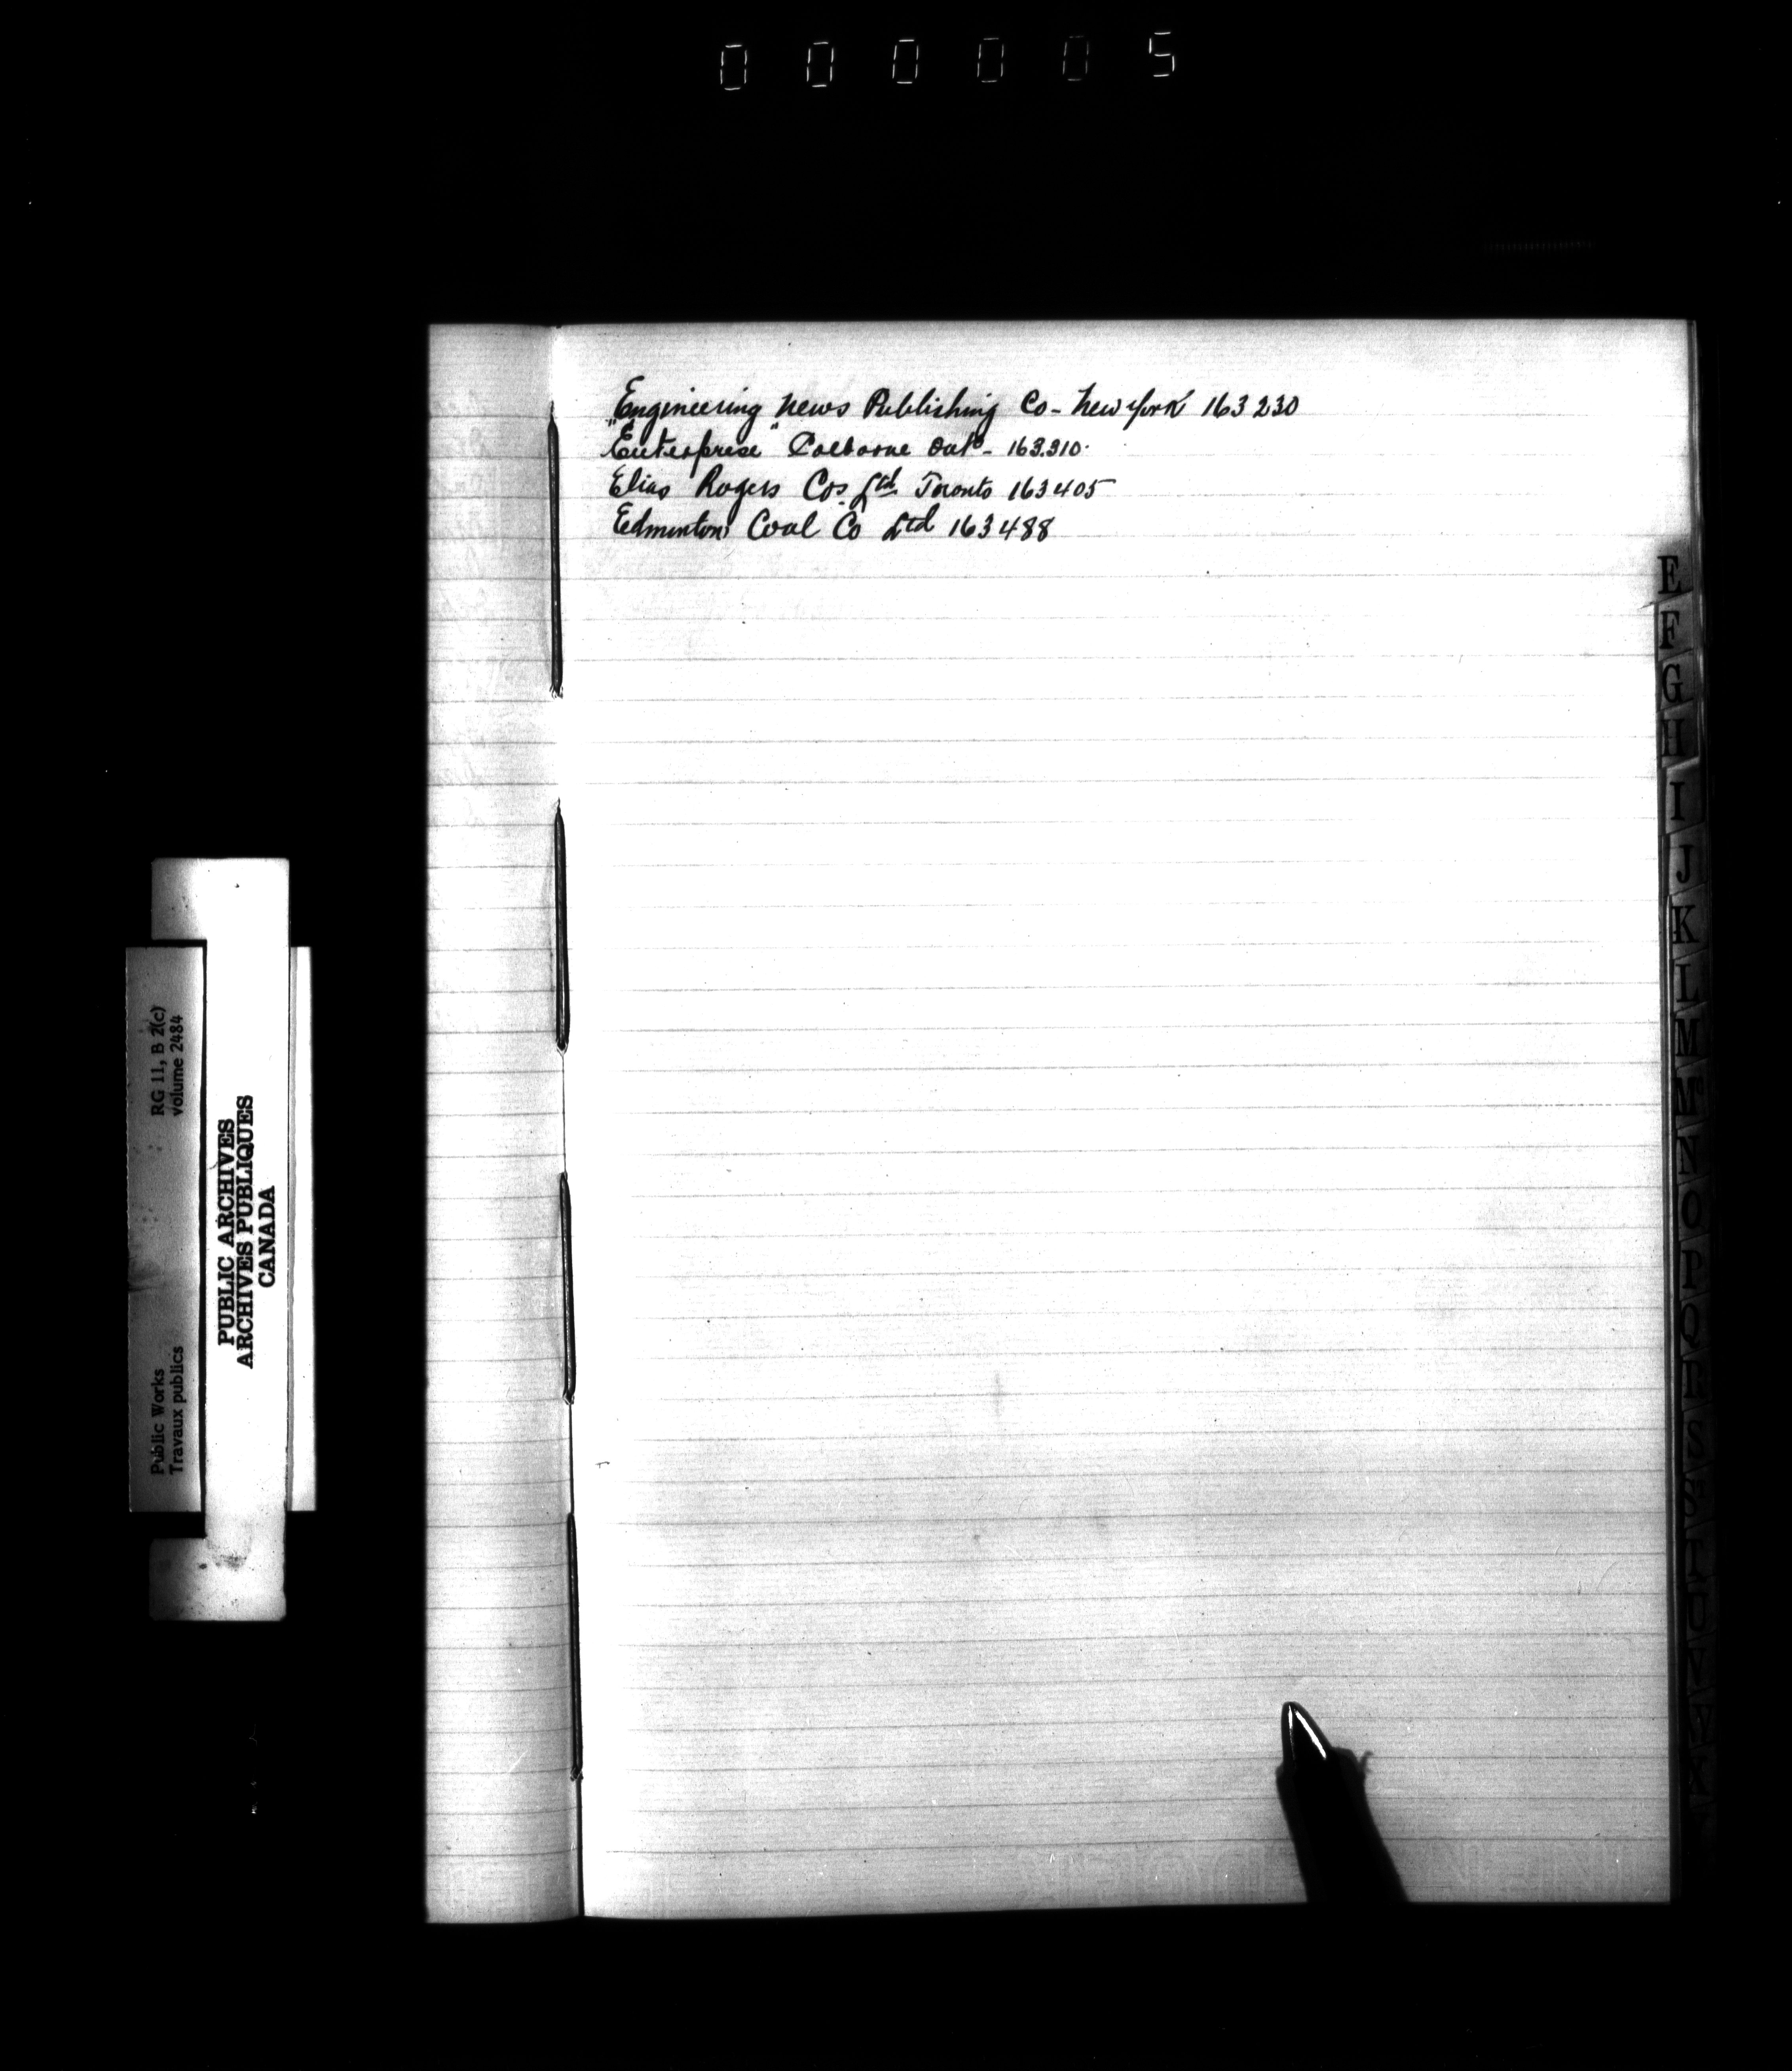 000005
Engineering News Publishing Co - New York 163230
"Enterprise" Colborne Ont - 163.310
Elias Rogers Co's Ltd Toronto 163405
Edmonton Coal Co Ltd 163488
E
F
G
H
I
J
K
L
M
Mc
N
O
P
Q
R
S
T
U
V
W
X
RG 11, B 2(c)
volume 2484
PUBLIC ARCHIVES
ARCHIVES PUBLIQUES
CANADA
Public Works
Travaux publics